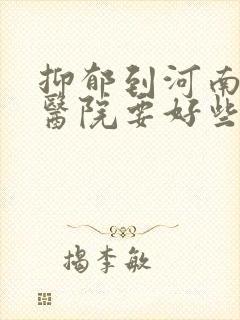 抑郁到河南
醫院要好些
揭李敏